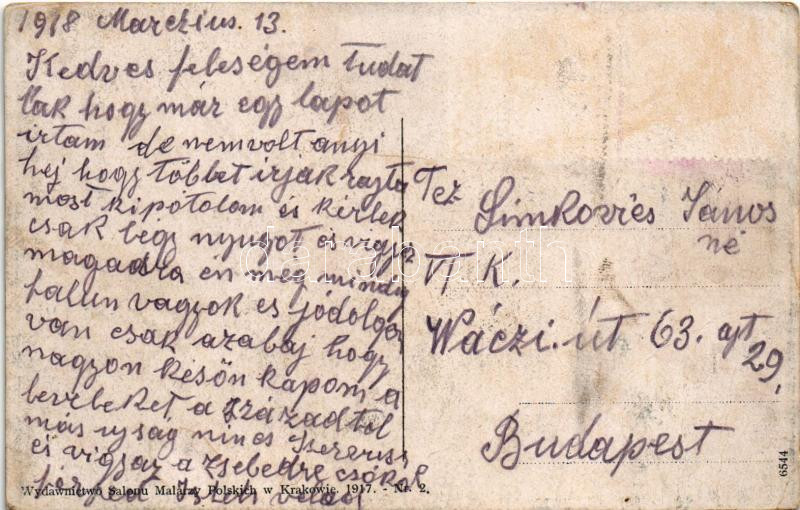 1918 Marczius. 13.
Kedves feleségem tudat
lak hogy már egy lapot
irtam de nemvolt anyi
hej hogy többet irjak rajta
most kipotolom és kérlek
csak légy nyugot és vigyáz
magadra én meg mindig
falun vagyok es jódolgom
van csak azabaj hogy
nagyon későn kapom a
leveleket a századtol
más ujság nincs Szeruss
és vigyaz a zsebedre csókol
férjed Isten veled
Tez
Simkovics János
né
VI K.
Váczi. út 63. ajt
29.
Budapest
Wydawnictwo Salonu Malarzy Polskich w Krakowie. 1917. - Nr. 2.
6544
darabanth